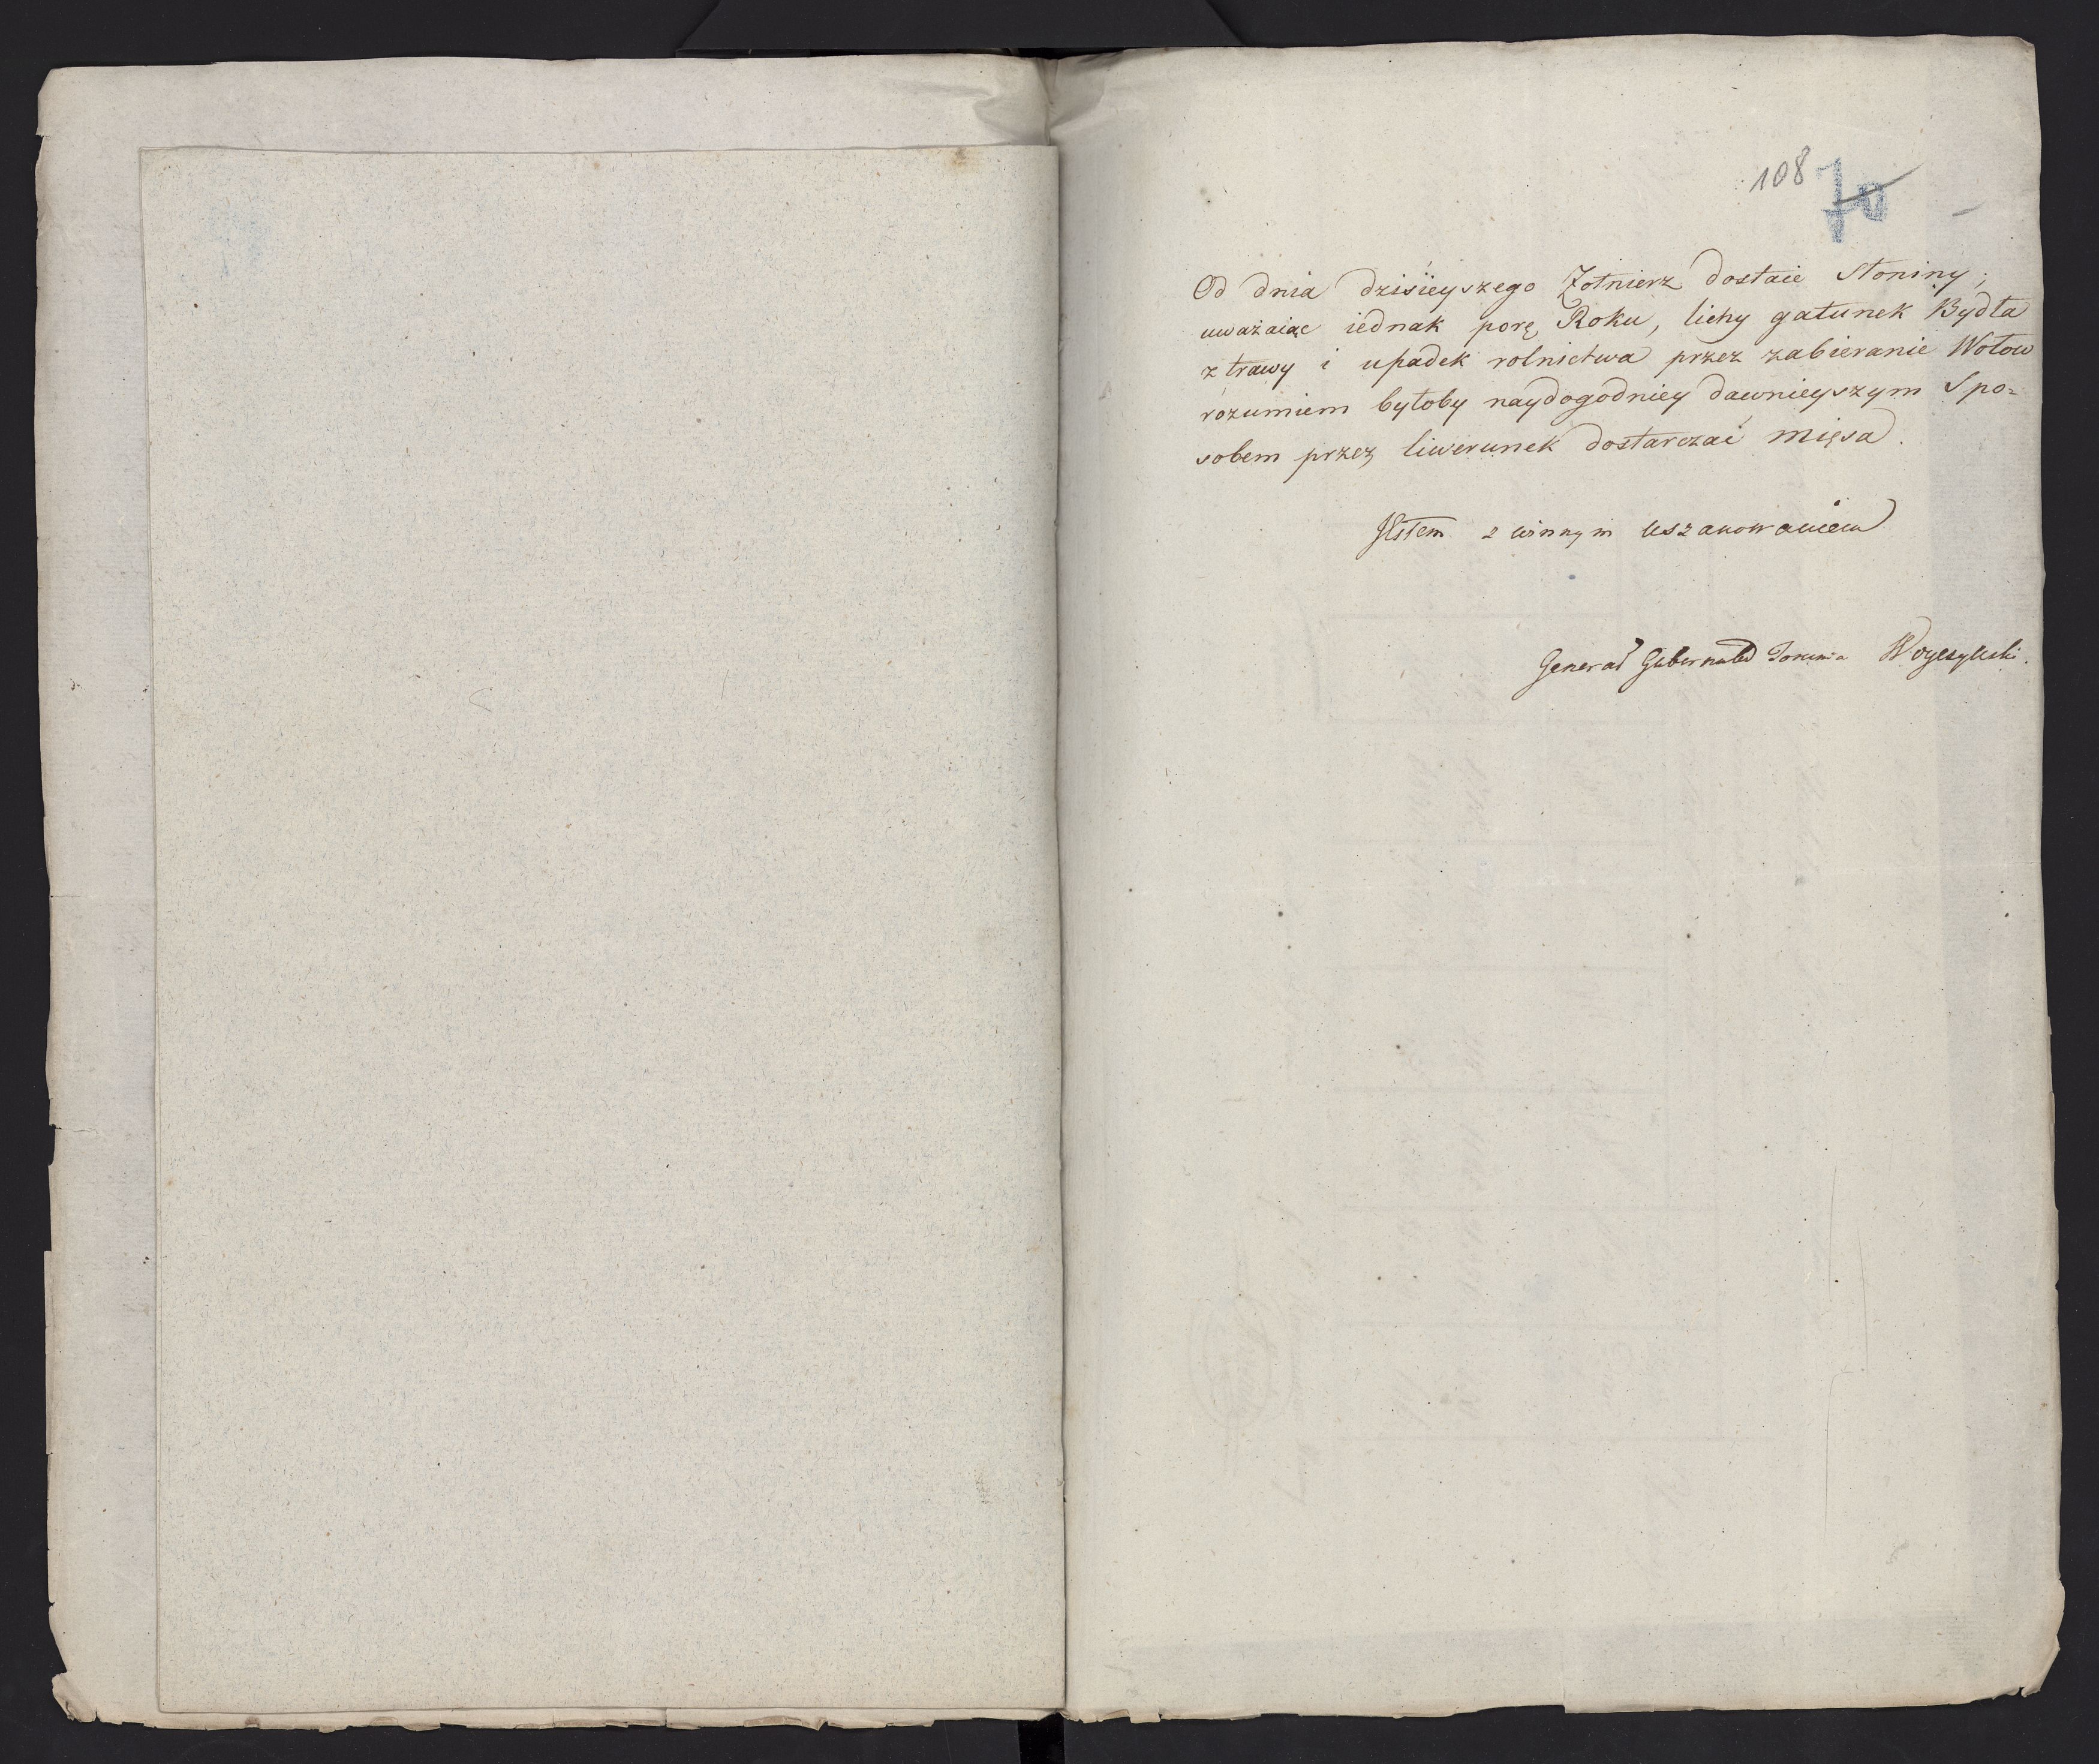 108 70
Od dnia dzisieyszego Żołnierz dostaie Słoniny;
uważaiąc iednak porę Roku, lichy gatunek Bydła
z trawy i upadek rolnictwa przez zabieranie Wołow
rozumiem byłoby naydogodniey dawnieyszym Spo=
sobem przez liwerunek dostarczać mięsa.
Jestem z winnym uszanowaniem
Generał Gubernator Torunia Woyczyński.